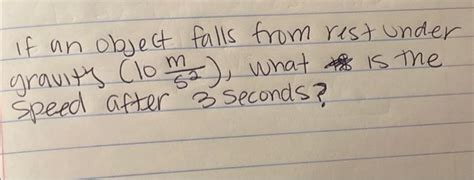 If an object falls from rest under
gravity (10 m/s²), what is the
speed after 3 seconds?